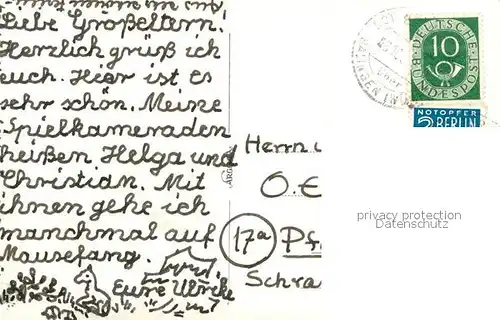 Liebe Großeltern!
Herzlich grüß ich
euch. Hier ist es
sehr schön. Meine
Spielkameraden
heißen Helga und
Christian. Mit
ihnen gehe ich
manchmal auf
Mausefang.
Eure Ulrike
Herrn
O.E
17a Pf
Schra
DEUTSCHE
BUNDESPOST
10
NOTOPFER
2 BERLIN
privacy protection
Datenschutz